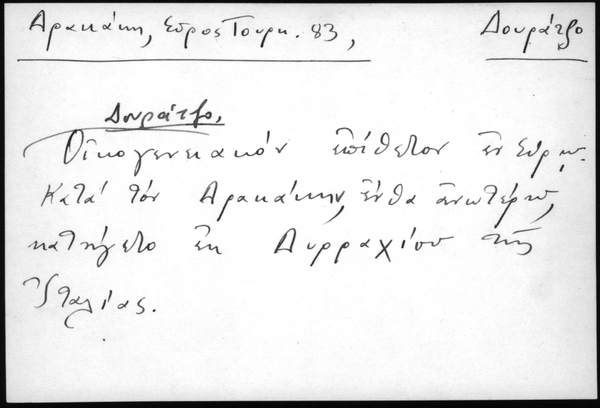 Δρακάκη, Σῦρος Τουρκ. 83, Δουράτζο
Δουράτζο,
Οἰκογενειακόν ἐπίθετον ἐν Σύρῳ.
Κατά τόν Δρακάκην, ἔνθα ἀνωτέρω,
κατήγετο ἐκ Δυρραχίου τῆς
Ἰταλίας.